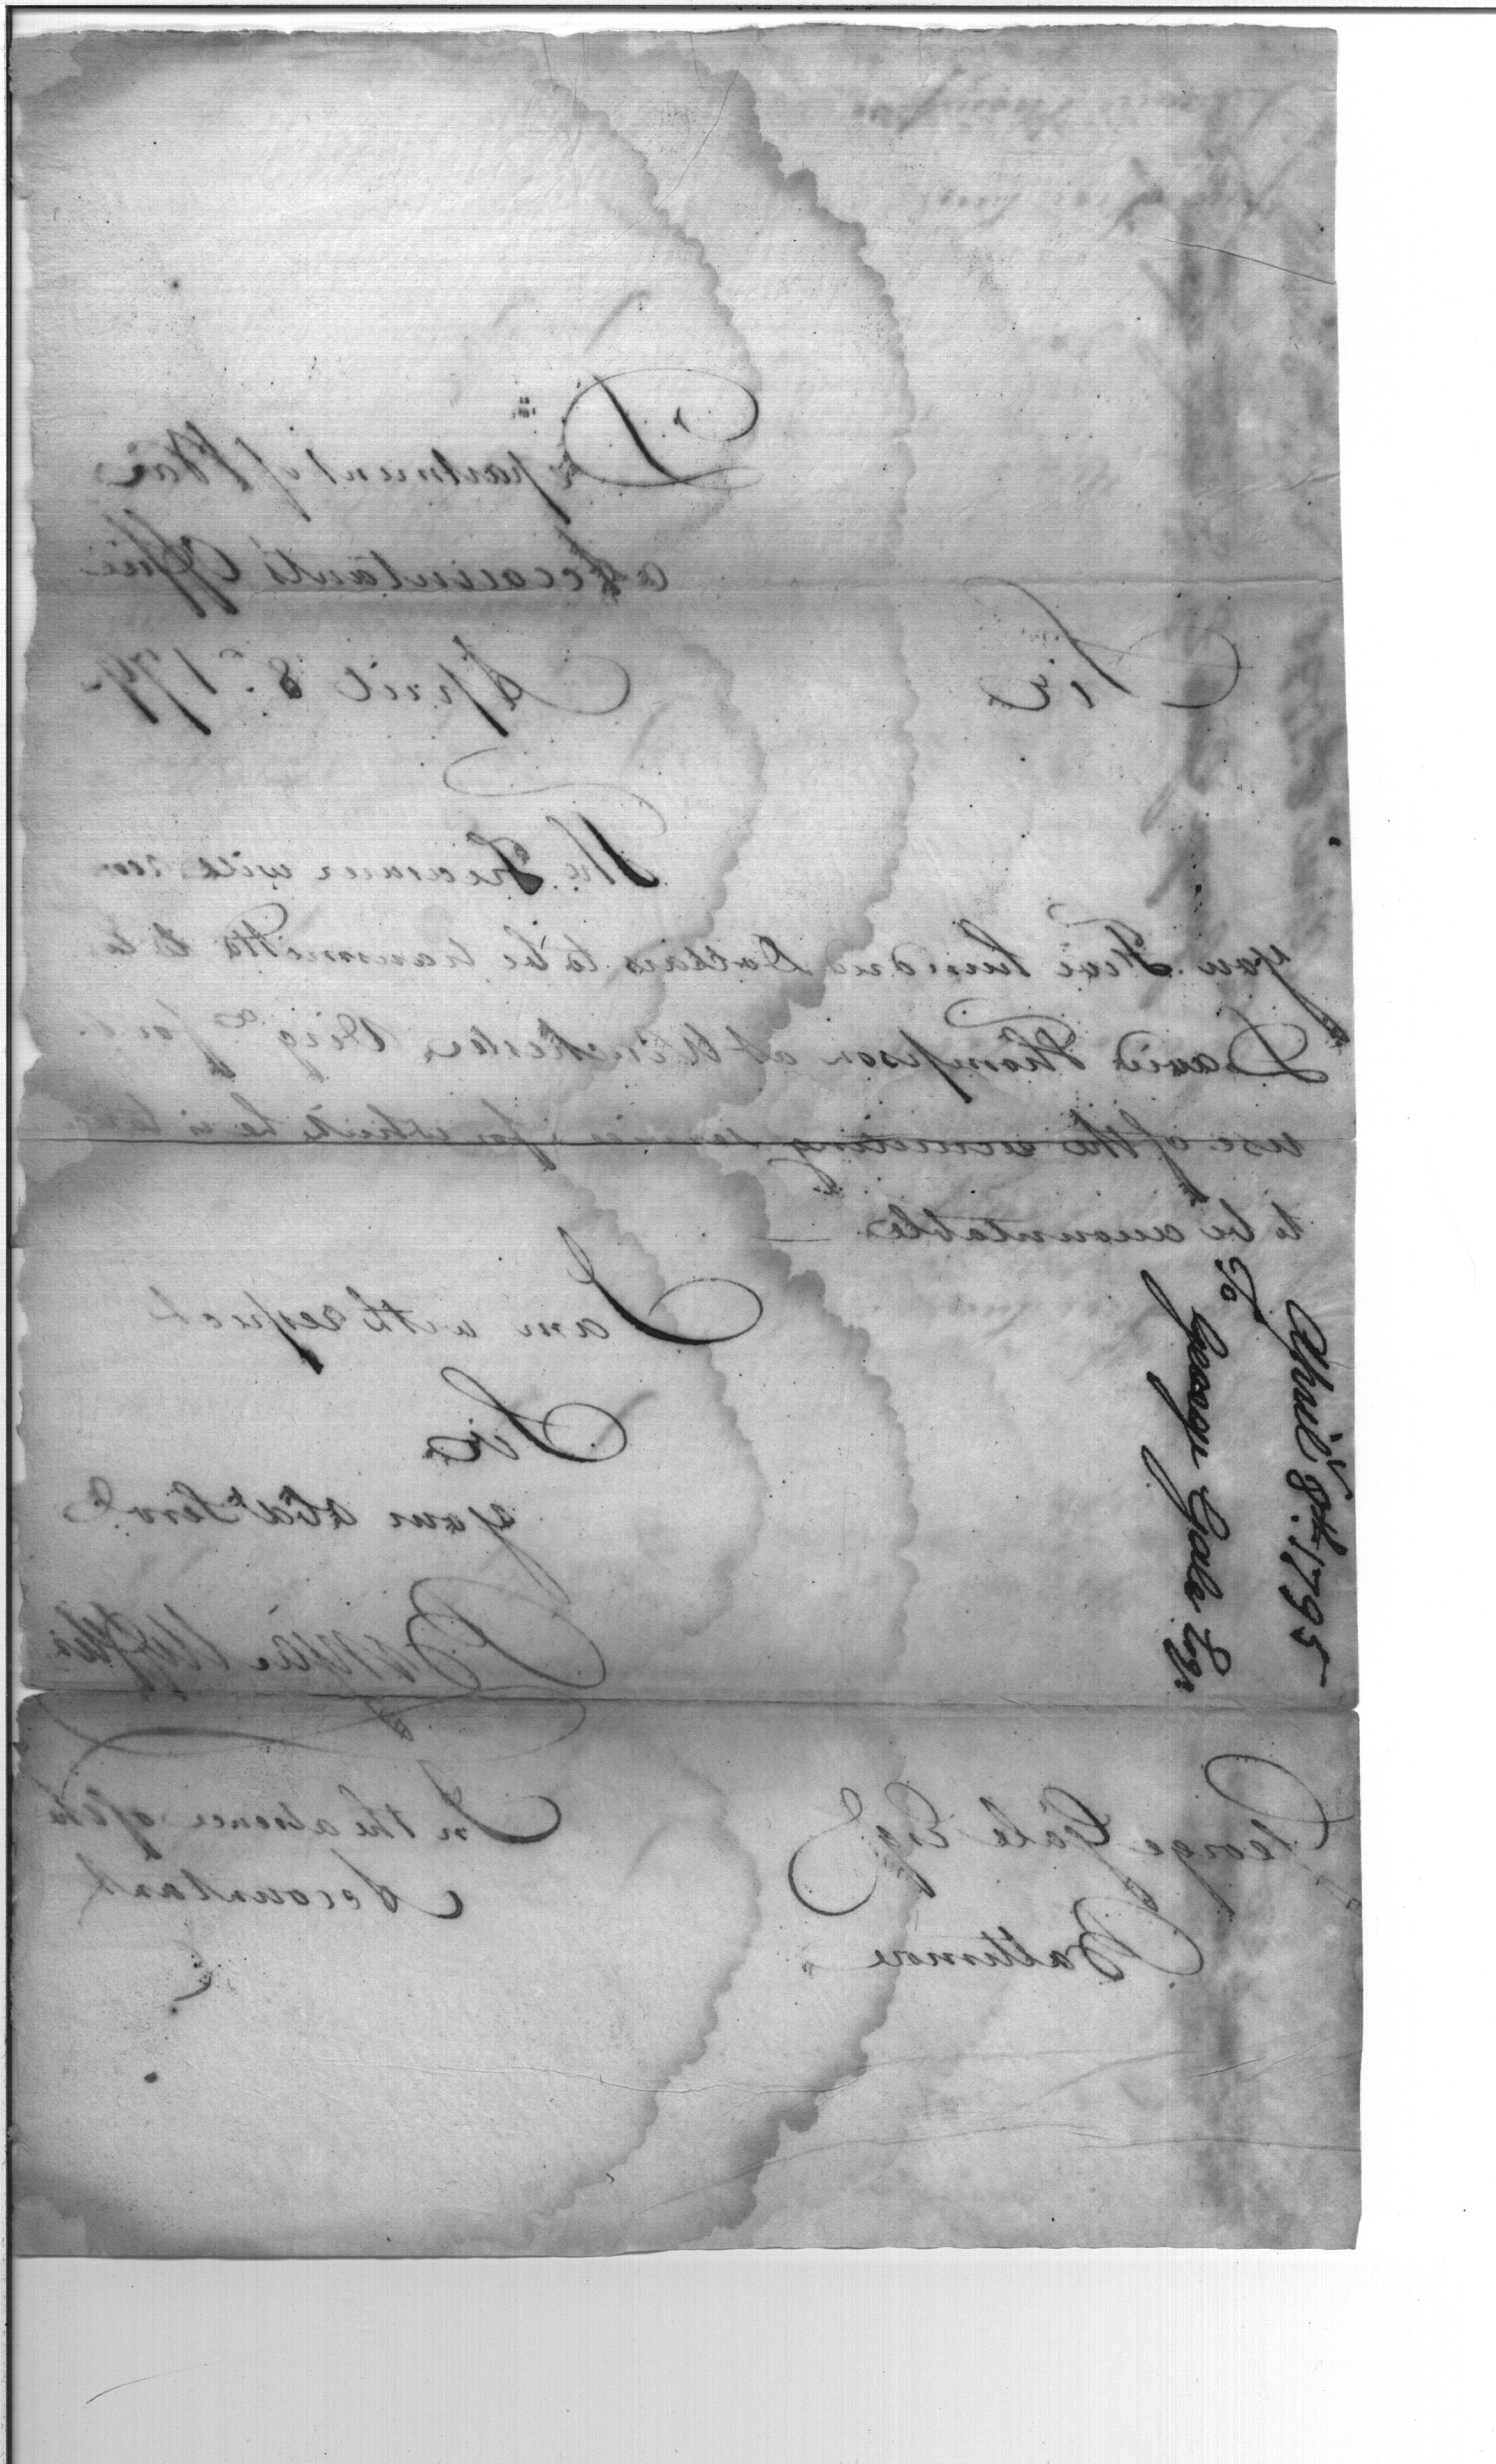 Department of War
Accountants Office
April 8th 179
Sir
The Treasurer will
you Five hundred Dollars to be transmitted to
David Thompson at Winchester Virga for
use of the recruiting service, for which he is
to be accountable —
I am with respect
Sir
your obdt Servt
In the absence of the
Accountant
George Gale Esqr
Baltimore
April 8th 1795
To George Gale Esqr.